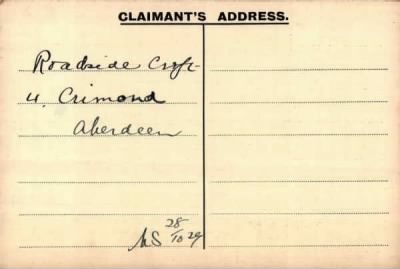 CLAIMANT'S ADDRESS.
Roadside Croft
4, Crimond
Aberdeen
28/10 29